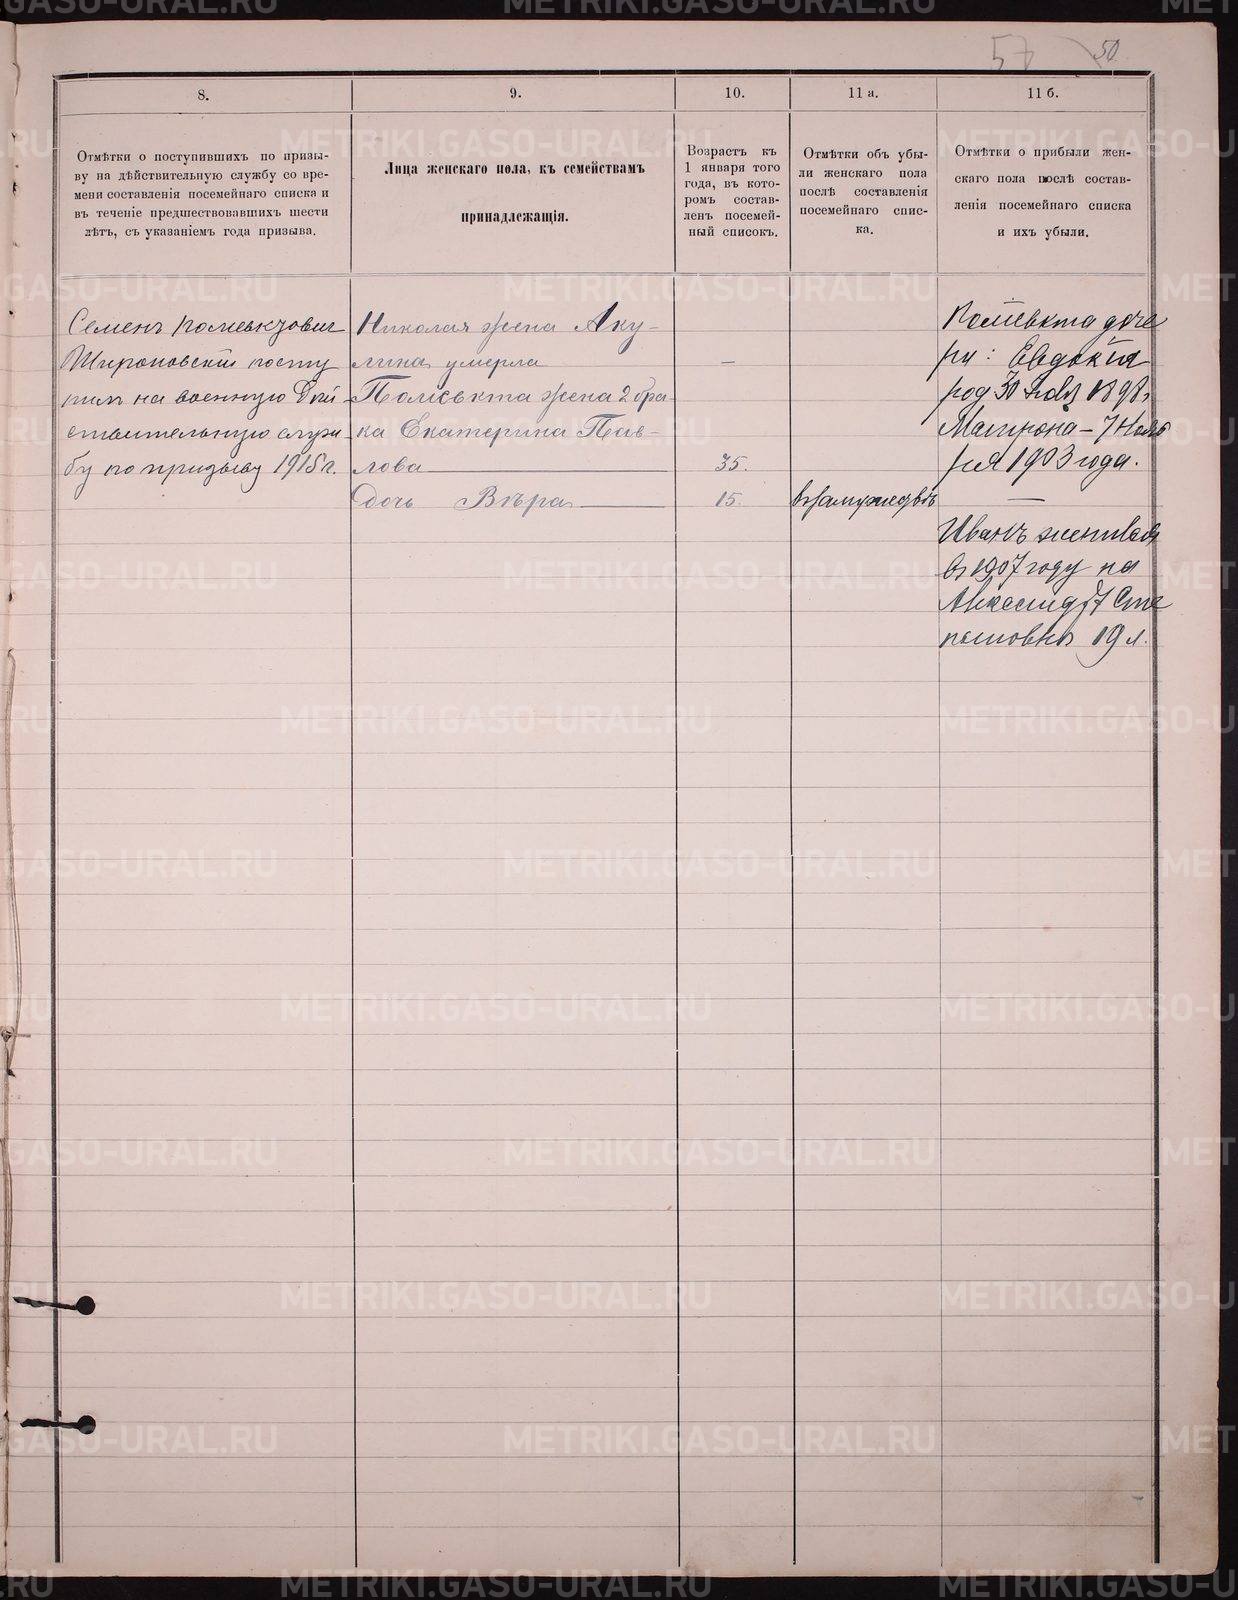 57 50
8.
9.
10.
11 а.
11 б.
Отмѣтки о поступившихъ по призы-
ву на дѣйствительную службу со вре-
мени составленія посемейнаго списка и
въ теченіе предшествовавшихъ шести
лѣтъ, съ указаніемъ года призыва.
Лица женскаго пола, къ семействамъ
принадлежащія.
Возрастъ къ
1 января того
года, въ кото-
ромъ состав-
ленъ посемей-
ный списокъ.
Отмѣтки объ убы-
ли женскаго пола
послѣ составленія
посемейнаго спис-
ка.
Отмѣтки о прибыли жен-
скаго пола послѣ состав-
ленія посемейнаго списка
и ихъ убыли.
Семенъ
посту
пилъ на военную Дѣй
ствительную служ
бу по призыву 1915 г.
Николая жена Аку-
лина умерла
Полієвкта жена 2 бра-
ка Екатерина Пав-
лова
Дочь Вѣра
—
35.
15.
въ замужествѣ
Полієвкта доче
ри: Евдокія
род 30 1898г
Матрона - 7 Нояб
ря 1903 года.
—
Иванъ женился
въ 1907 году на
Сте
пановнѣ 19 л.
METRIKI.GASO-URAL.RU